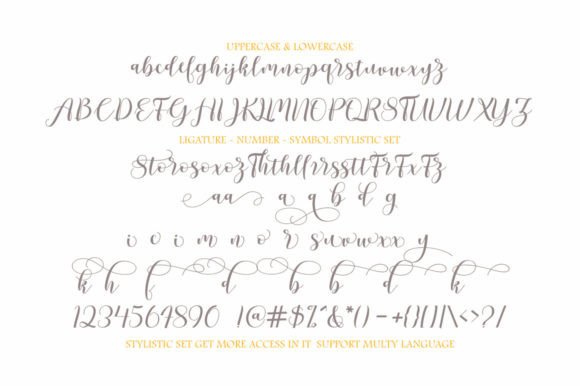 UPPERCASE & LOWERCASE
abcdefghijklmnopqrstuvwxyz
ABCDEFGHIJKLMNOPQRSTUVWXYZ
LIGATURE - NUMBER - SYMBOL STYLISTIC SET
StorosoxozThthllrrssttFrFxFz
aa a q b d g
i c i m n o r s u v w x x y
k h f d b b d k
1234564890 !@#$%^&*()-+{}[]|\<>?/
STYLISTIC SET GET MORE ACCESS IN IT SUPPORT MULTY LANGUAGE